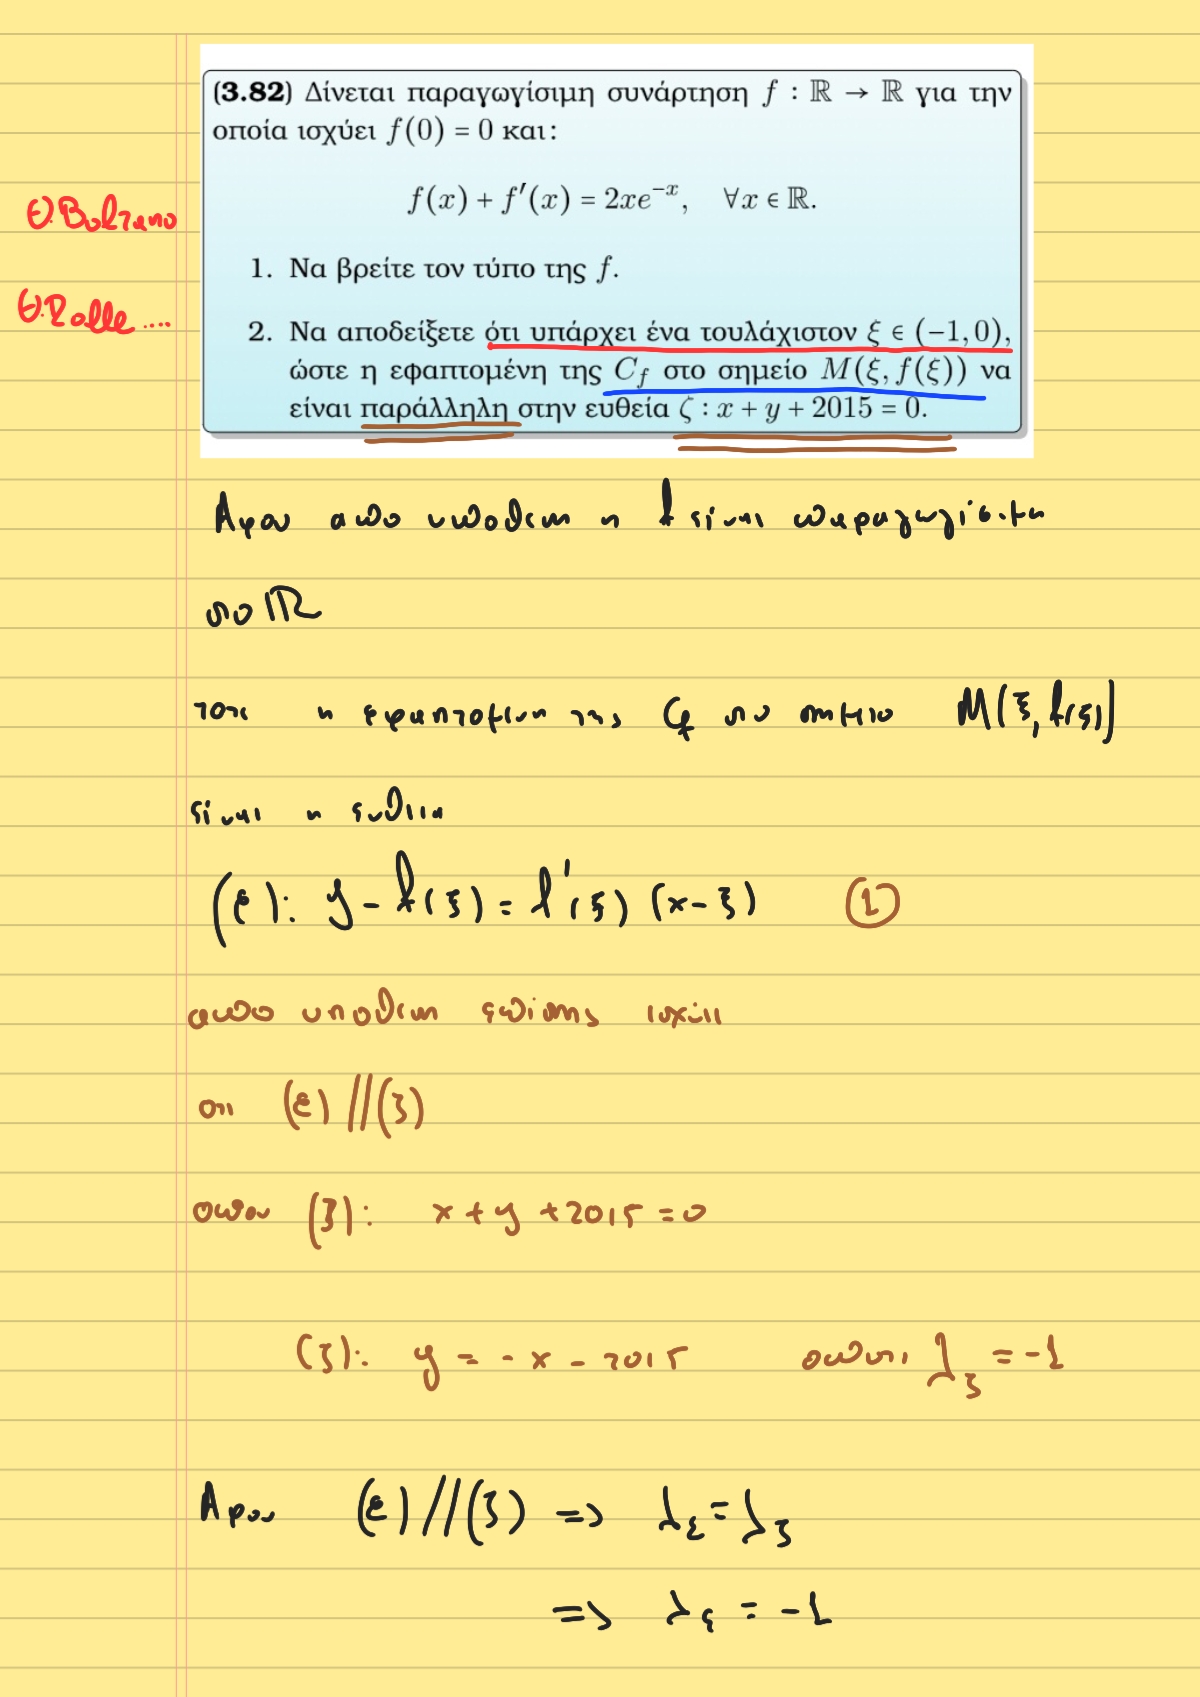 (3.82) Δίνεται παραγωγίσιμη συνάρτηση f : ℝ → ℝ για την
οποία ισχύει f(0) = 0 και:
f(x) + f′(x) = 2xe⁻ˣ, ∀x ∈ ℝ.
Θ.Bolzano
1. Να βρείτε τον τύπο της f.
Θ.Rolle ....
2. Να αποδείξετε ότι υπάρχει ένα τουλάχιστον ξ ∈ (−1, 0),
ώστε η εφαπτομένη της C_f στο σημείο M(ξ, f(ξ)) να
είναι παράλληλη στην ευθεία ζ : x + y + 2015 = 0.
Αφου απο υποθεση η f είναι παραγωγίσιμη
στο ℝ
τοτε η εφαπτομενη της C_f στο σημειο M(ξ, f(ξ))
είναι η ευθεια
(ε): y - f(ξ) = f′(ξ) (x - ξ) ①
απο υποθεση επίσης ισχύει
οτι (ε) // (ζ)
οπου (ζ): x + y + 2015 = 0
(ζ): y = - x - 2015 οποτε λ_ζ = -1
Αφου (ε) // (ζ) => λ_ε = λ_ζ
=> λ_ε = -1